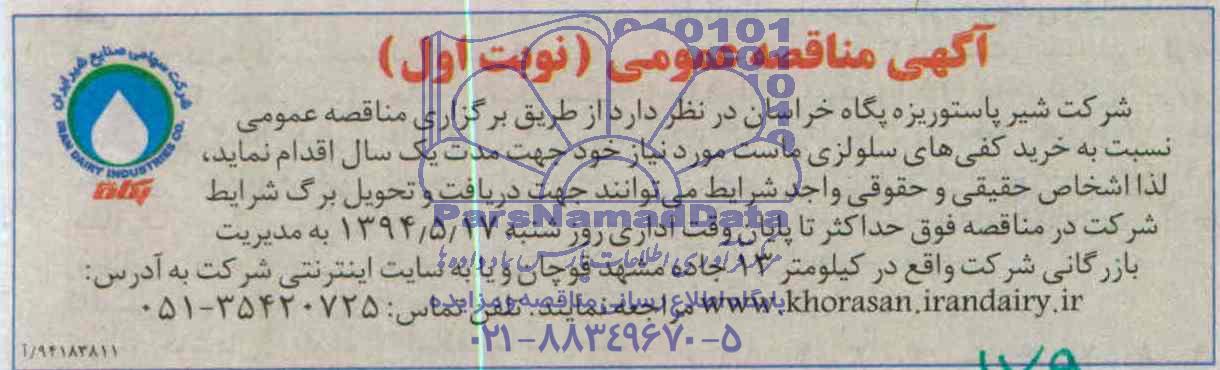 آگهی مناقصه عمومی (نوبت اول)
شرکت شیر پاستوریزه پگاه خراسان در نظر دارد از طریق برگزاری مناقصه عمومی
نسبت به خرید کفی‌های سلولزی ماست مورد نیاز خود جهت مدت یک سال اقدام نماید،
لذا اشخاص حقیقی و حقوقی واجد شرایط می‌توانند جهت دریافت و تحویل برگ شرایط
شرکت در مناقصه فوق حداکثر تا پایان وقت اداری روز شنبه ۱۳۹۴٫۵٫۱۷ به مدیریت
بازرگانی شرکت واقع در کیلومتر ۱۳ جاده مشهد قوچان و یا به سایت اینترنتی شرکت به آدرس:
www.khorasan.irandairy.ir مراجعه نمایند. تلفن تماس: ۰۵۱-۳۵۴۲۰۷۲۵
آ/۹۴۱۸۳۸۱۱
شرکت سهامی صنایع شیر ایران
IRAN DAIRY INDUSTRIES CO.
پگاه
ParsNamadData
پایگاه اطلاع رسانی مناقصه و مزایده
۰۲۱-۸۸۳۴۹۶۷۰-۵